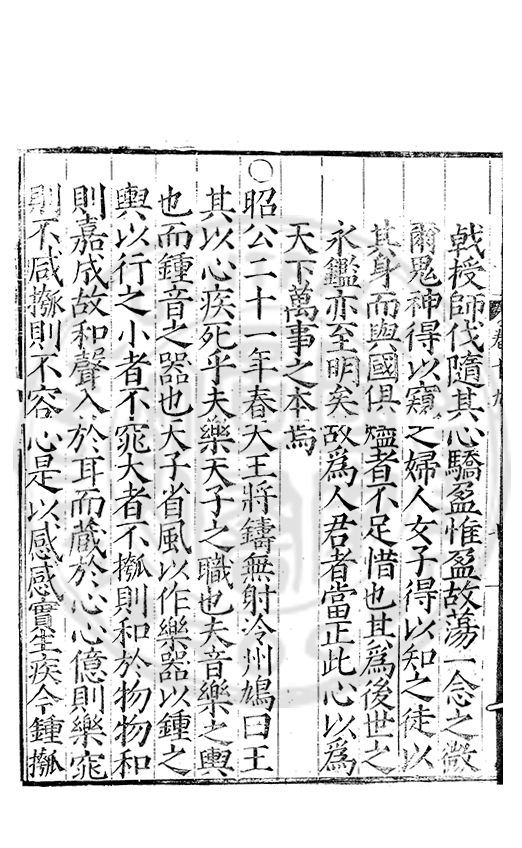 戟授師伐隨其心驕盈惟盈故蕩一念之微
爾鬼神得以窺之婦人女子得以知之徒以
其身而與國俱燼者不足惜也其為後世之
永鑑亦至明矣故為人君者當正此心以為
天下萬事之本焉
○昭公二十一年春天王將鑄無射泠州鳩曰王
其以心疾死乎夫樂天子之職也夫音樂之輿
也而鍾音之器也天子省風以作樂器以鍾之
輿以行之小者不窕大者不摦則和於物物和
則嘉成故和聲入於耳而藏於心心億則樂窕
則不咸摦則不容心是以感感實生疾今鍾摦